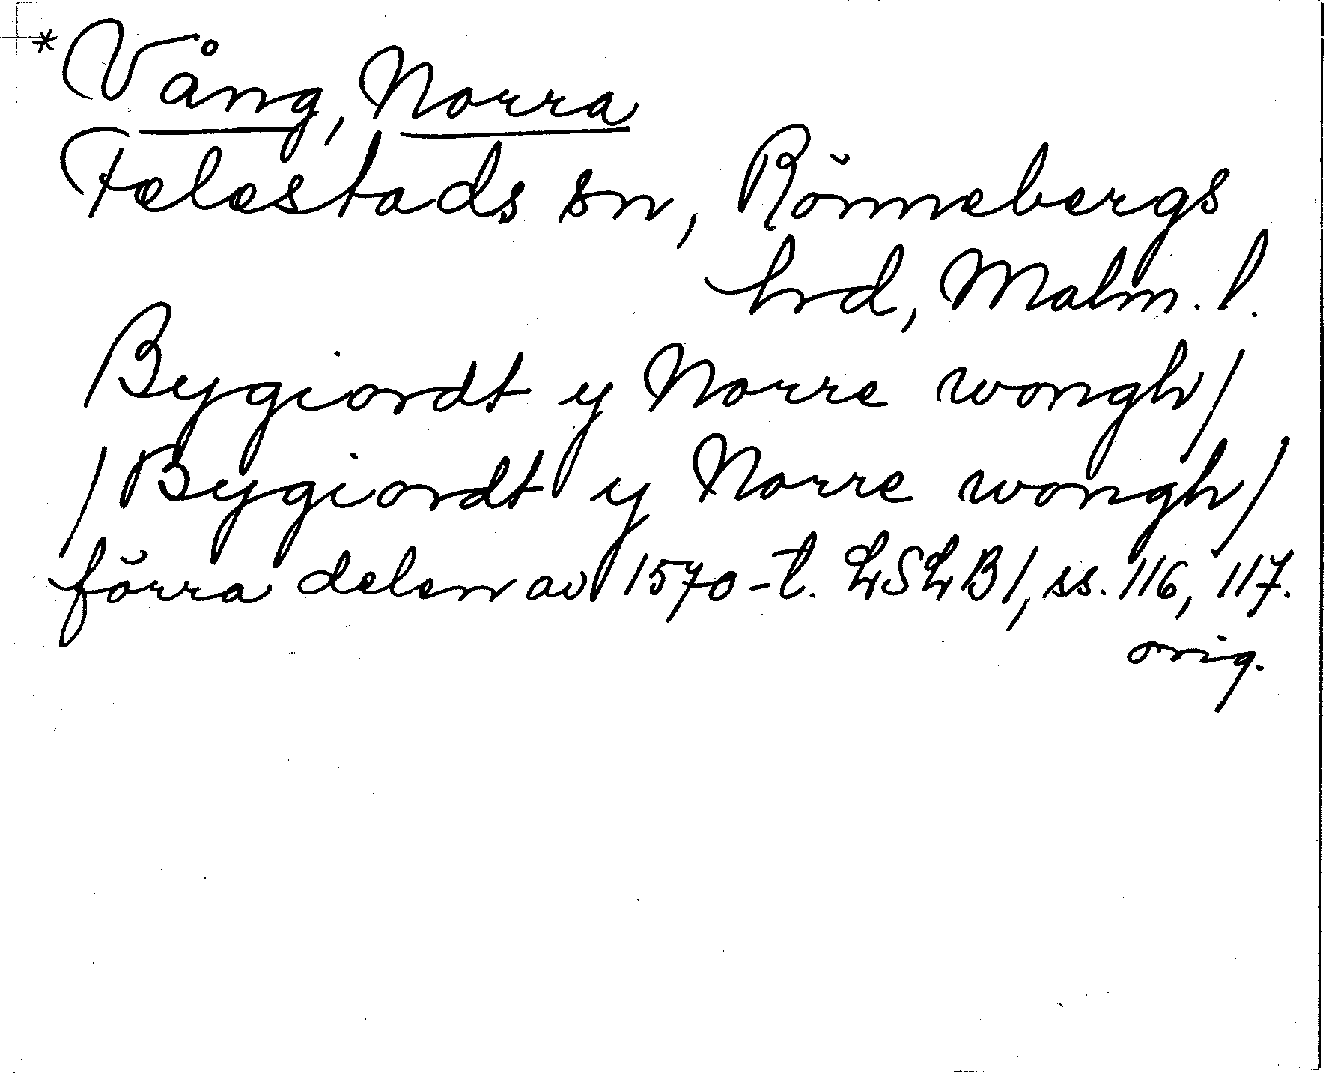 *Vång, Norra
Felestads sn, Rönnebergs
hrd, Malm. l.
Bygiordt y Norre wongh/
/Bygiordt y Norre wongh/
förra delen av 1570-t. LSLB1, ss. 116, 117.
orig.